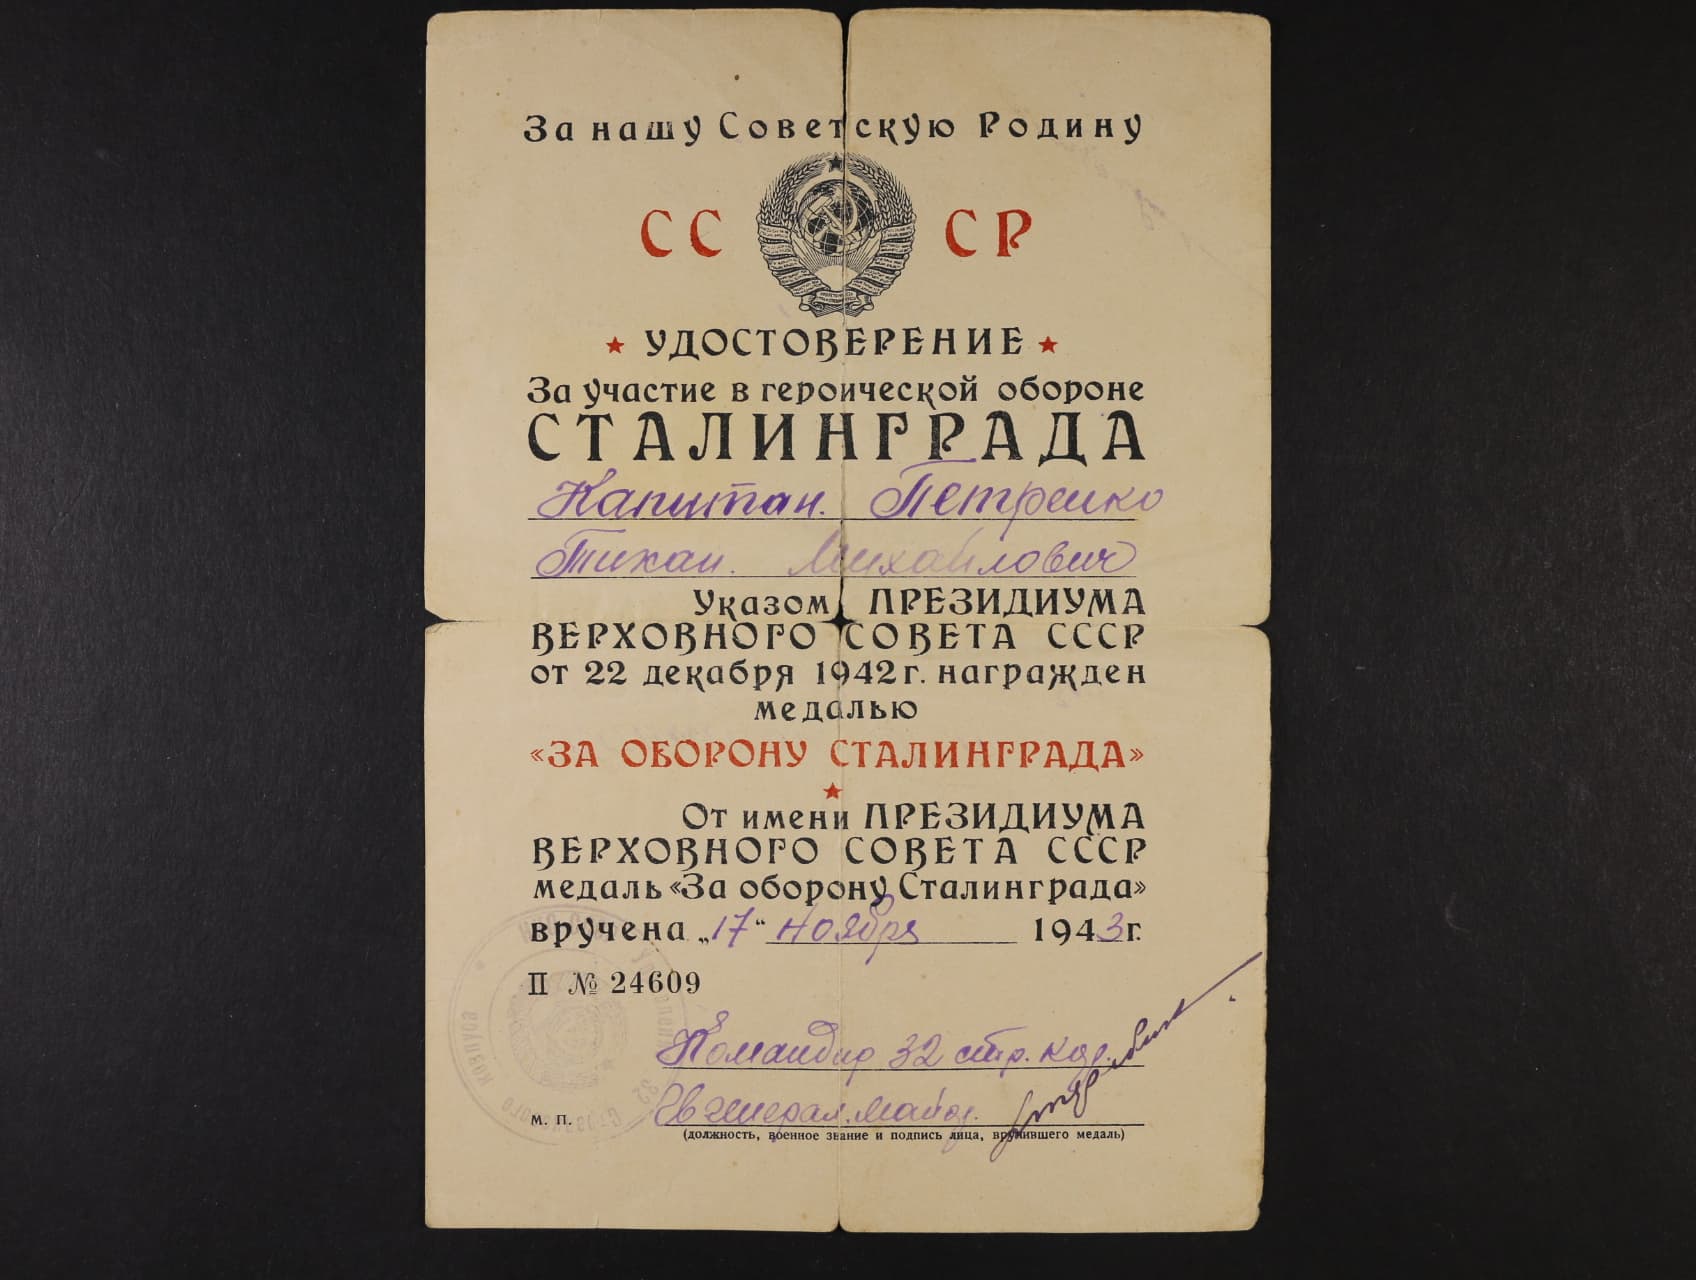 За нашу Советскую Родину
СС СР
УДОСТОВЕРЕНИЕ
За участие в героической обороне
СТАЛИНГРАДА
Капитан. Петренко
Тихан. Михайлович
Указом ПРЕЗИДИУМА
ВЕРХОВНОГО СОВЕТА СССР
от 22 декабря 1942 г. награжден
медалью
«ЗА ОБОРОНУ СТАЛИНГРАДА»
От имени ПРЕЗИДИУМА
ВЕРХОВНОГО СОВЕТА СССР
медаль «За оборону Сталинграда»
вручена „17“ Ноября 1943 г.
П № 24609
Командир 32 стр. кор.
Гв генерал. майор.
м. п.
(должность, военное звание и подпись лица, вручившего медаль)